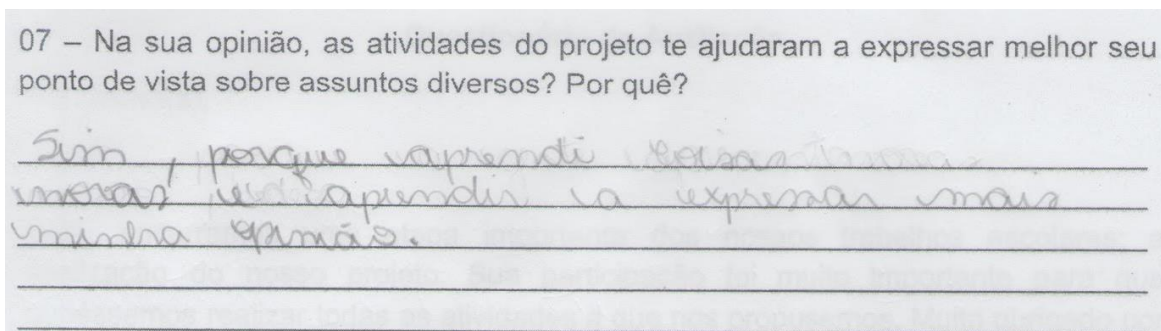 07 – Na sua opinião, as atividades do projeto te ajudaram a expressar melhor seu
ponto de vista sobre assuntos diversos? Por quê?
Sim, porque aprendi coisas
novas e aprendi a expressar mais
minha opinião.